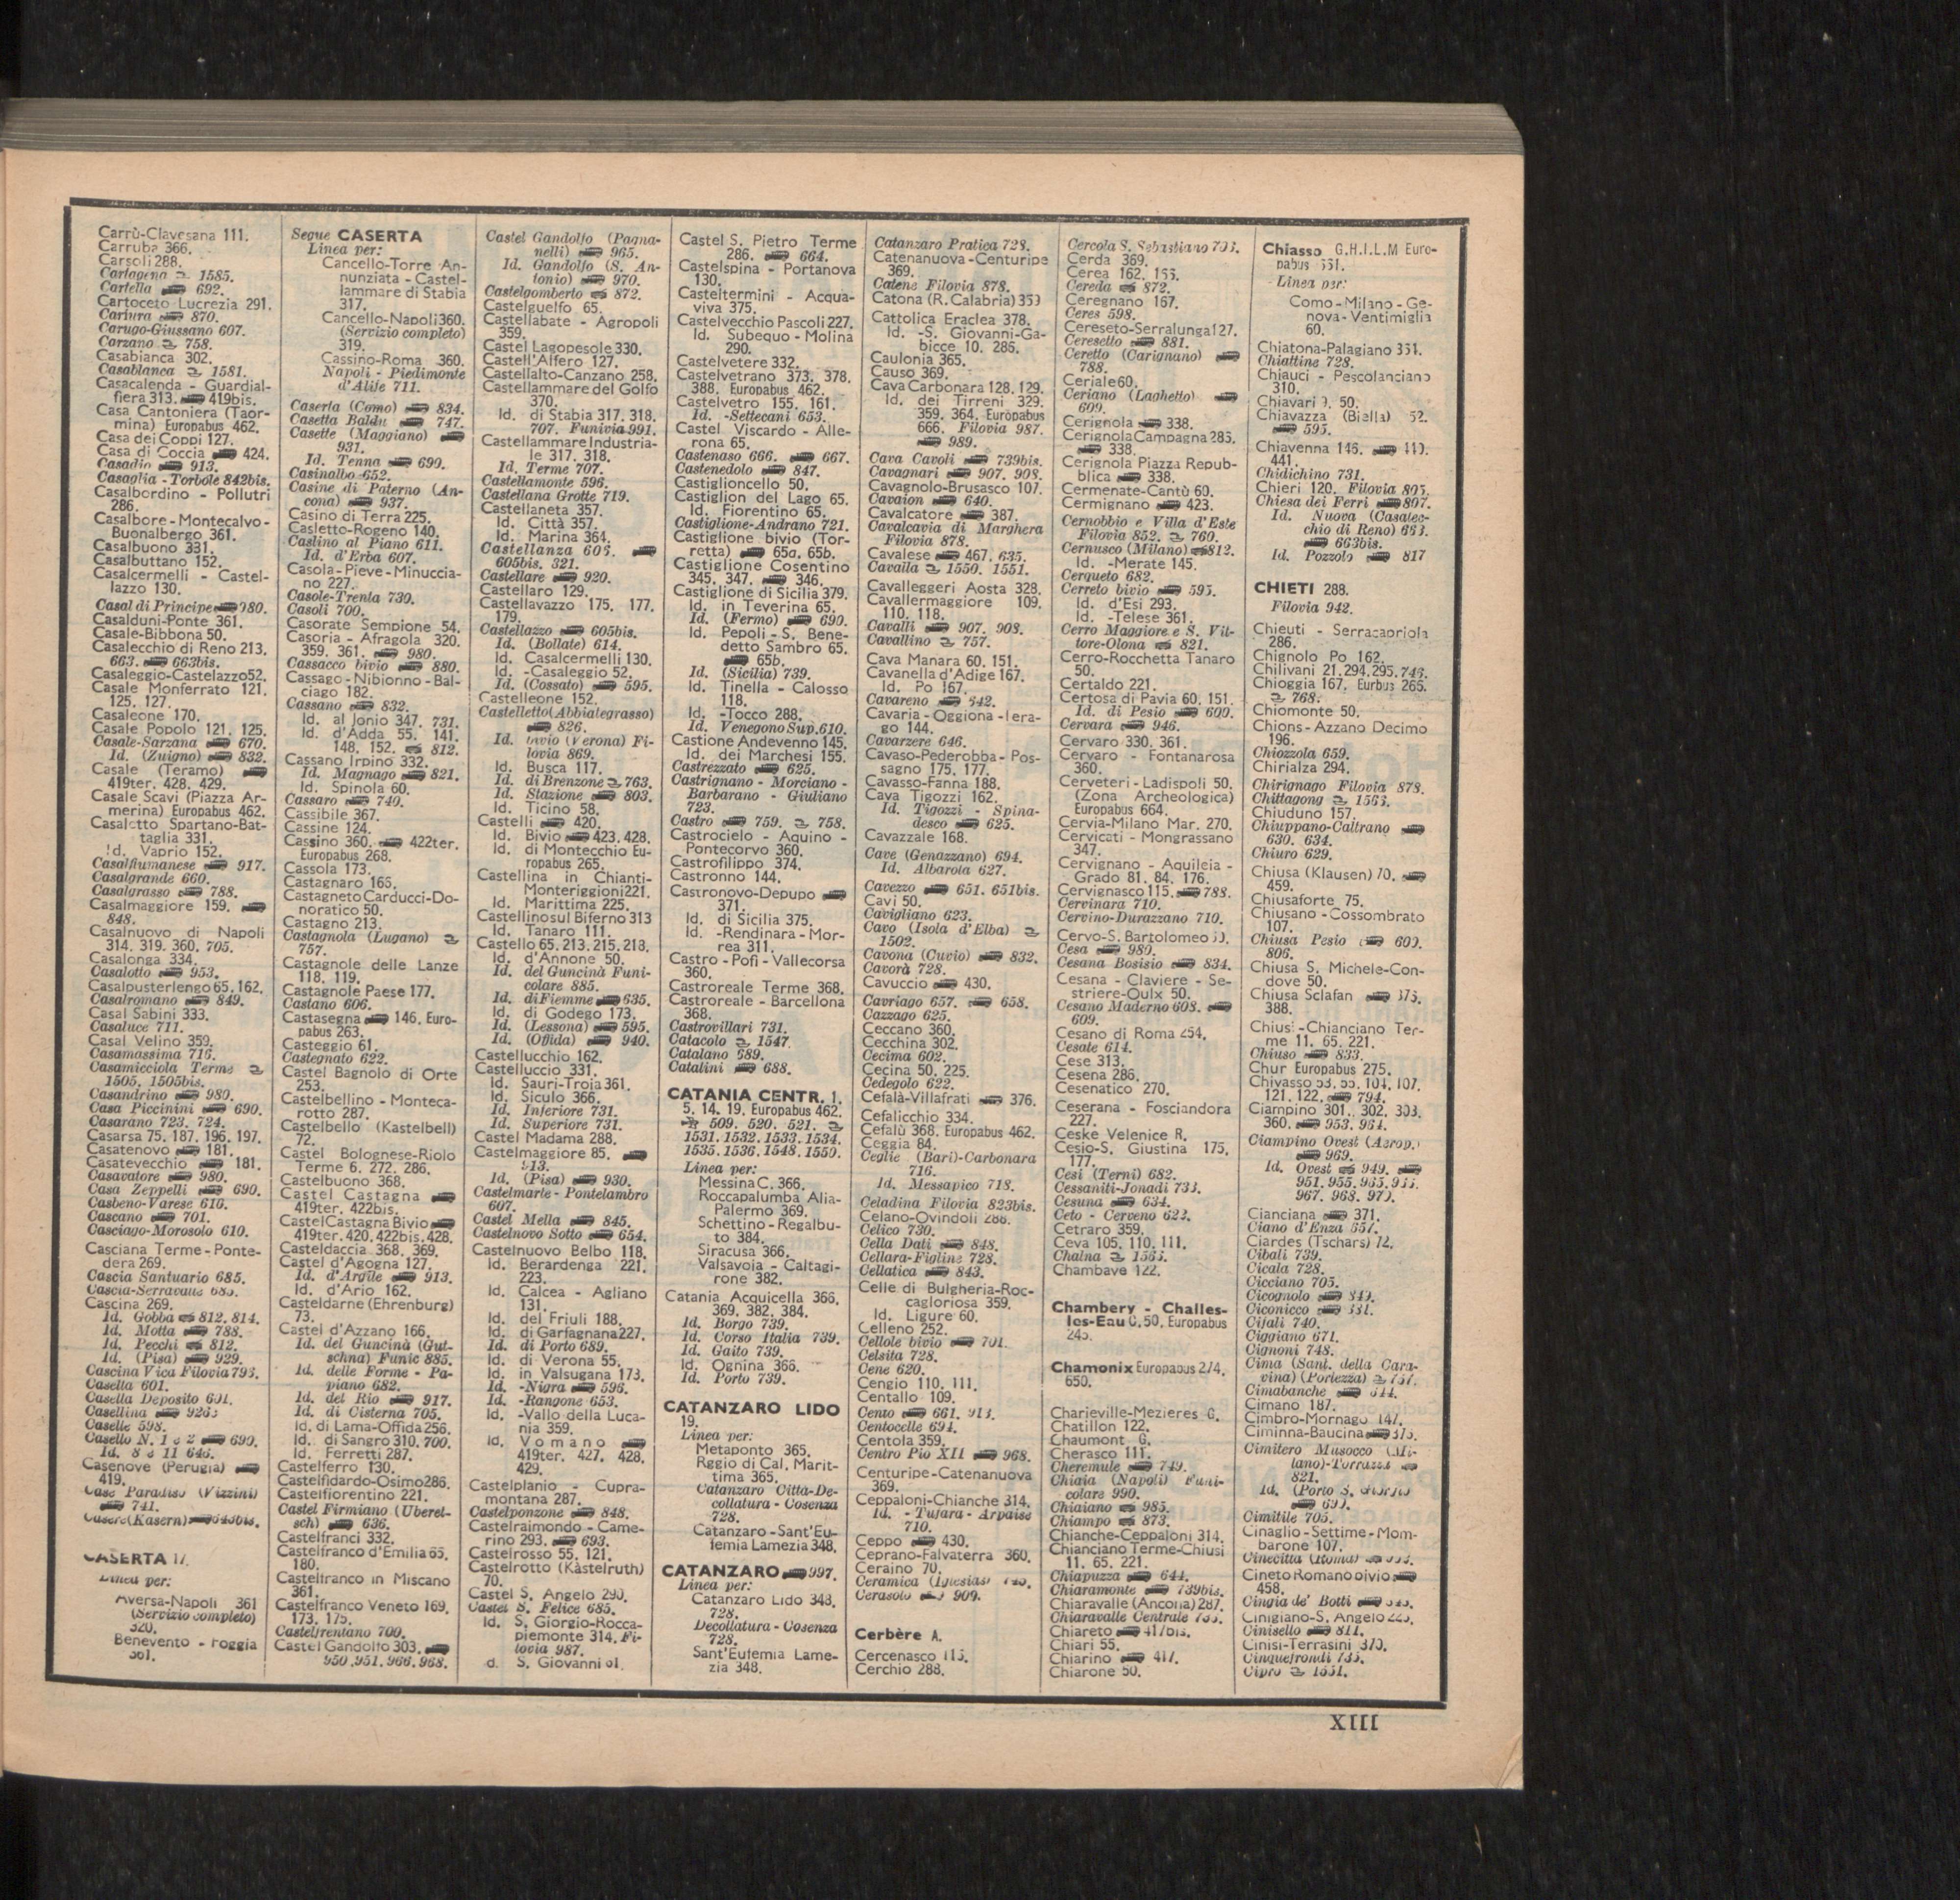 Carrù-Clavesana 111.
Carruba 366.
Carsoli 288.
Cartagena 1585.
Cartella 692.
Cartoceto Lucrezia 291.
Cartura 870.
Carugo-Giussano 607.
Carzano 758.
Casabianca 302.
Casablanca 1581.
Casacalenda - Guardial-
fiera 313. 419bis.
Casa Cantoniera (Taor-
mina) Europabus 462.
Casa dei Coppi 127.
Casa di Coccia 424.
Casadio 913.
Casaglia - Torbole 842bis.
Casalbordino - Pollutri
286.
Casalbore - Montecalvo -
Buonalbergo 361.
Casalbuono 331.
Casalbuttano 152.
Casalcermelli - Castel-
lazzo 130.
Casal di Principe 980.
Casalduni-Ponte 361.
Casale-Bibbona 50.
Casalecchio di Reno 213.
663. 663bis.
Casaleggio-Castelazzo 52.
Casale Monferrato 121.
125. 127.
Casaleone 170.
Casale Popolo 121. 125.
Casale-Sarzana 670.
Id. (Zuigno) 832.
Casale (Teramo)
419ter. 428. 429.
Casale Scavi (Piazza Ar-
merina) Europabus 462.
Casaletto Spartano-Bat-
taglia 331.
Id. Vaprio 152.
Casalfiumanese 917.
Casalgrande 660.
Casalgrasso 788.
Casalmaggiore 159.
848.
Casalnuovo di Napoli
314. 319. 360. 705.
Casalonga 334.
Casalotto 953.
Casalpusterlengo 65. 162.
Casalromano 849.
Casal Sabini 333.
Casaluce 711.
Casal Velino 359.
Casamassima 716.
Casamicciola Terme
1505. 1505bis.
Casandrino 980.
Casa Piccinini 690.
Casarano 723. 724.
Casarsa 75. 187. 196. 197.
Casatenovo 181.
Casatevecchio 181.
Casavatore 980.
Casa Zeppelli 690.
Casbeno-Varese 616.
Cascano 701.
Casciago-Morosolo 610.
Casciana Terme - Ponte-
dera 269.
Cascia Santuario 685.
Cascia-Serravalle 685.
Cascina 269.
Id. Gobba 812. 814.
Id. Motta 788.
Id. Pecchi 812.
Id. (Pisa) 929.
Cascina Vica Filovia 793.
Casella 601.
Casella Deposito 601.
Casellina
Caselle 598.
Casello N. 1 e 2 690.
Id. 8 e 11 646.
Casenove (Perugia)
419.
Case Paradiso (Vizzini)
741.
Casere (Kasern)
CASERTA 17.
Linea per:
Aversa-Napoli 361
(Servizio completo)
320.
Benevento - Foggia
361.
Segue CASERTA
Linea per:
Cancello-Torre An-
nunziata - Castel-
lammare di Stabia
317.
Cancello-Napoli 360.
(Servizio completo)
319.
Cassino-Roma 360.
Napoli - Piedimonte
d'Alife 711.
Caserta (Como) 834.
Casetta Baldu 747.
Casette (Maggiano)
931.
Id. Tenna 690.
Casinalbo 652.
Casine di Paterno (An-
cona) 937.
Casino di Terra 225.
Casletto-Rogeno 140.
Caslino al Piano 611.
Id. d'Erba 607.
Casola-Pieve-Minuccia-
no 227.
Casole-Trenta 730.
Casoli 700.
Casorate Sempione 54.
Casoria - Afragola 320.
359. 361. 980.
Cassacco bivio 880.
Cassago - Nibionno - Bal-
ciago 182.
Cassano 832.
Id. al Jonio 347. 731.
Id. d'Adda 55. 141.
148. 152. 812.
Cassano Irpino 332.
Id. Magnago 821.
Id. Spinola 60.
Cassaro 740.
Cassibile 367.
Cassine 124.
Cassino 360. 422ter.
Europabus 268.
Cassola 173.
Castagnaro 166.
Castagneto Carducci-Do-
noratico 50.
Castagno 213.
Castagnola (Lugano)
757.
Castagnole delle Lanze
118. 119.
Castagnole Paese 177.
Castano 606.
Castasegna 146. Euro-
pabus 263.
Casteggio 61.
Castegnato 622.
Castel Bagnolo di Orte
253.
Castelbellino - Monteca-
rotto 287.
Castelbello (Kastelbell)
72.
Castel Bolognese-Riolo
Terme 6. 272. 286.
Castelbuono 368.
Castel Castagna
419ter. 422bis.
Castel Castagna Bivio
419ter. 420. 422bis. 428.
Casteldaccia 368. 369.
Castel d'Agogna 127.
Id. d'Argile 913.
Id. d'Ario 162.
Casteldarne (Ehrenburg)
73.
Castel d'Azzano 166.
Id. del Guncinà (Gut-
schna) Funic 885.
Id. delle Forme - Pa-
piano 682.
Id. del Rio 917.
Id. di Cisterna 705.
Id. di Lama-Offida 256.
Id. di Sangro 310. 700.
Id. Ferretti 287.
Castelferro 130.
Castelfidardo-Osimo 286.
Castelfiorentino 221.
Castel Firmiano (Uberet-
sch) 636.
Castelfranci 332.
Castelfranco d'Emilia 65.
180.
Castelfranco in Miscano
361.
Castelfranco Veneto 169.
173. 175.
Castelfrentano 700.
Castel Gandolfo 303.
950. 951. 966. 968.
Castel Gandolfo (Pagna-
nelli) 965.
Id. Gandolfo (S. An-
tonio) 970.
Castelgomberto 872.
Castelguelfo 65.
Castellabate - Agropoli
359.
Castel Lagopesole 330.
Castell'Alfero 127.
Castellalto-Canzano 258.
Castellammare del Golfo
370.
Id. di Stabia 317. 318.
707. Funivia 991.
Castellammare Industria-
le 317. 318.
Id. Terme 707.
Castellamonte 596.
Castellana Grotte 719.
Castellaneta 357.
Id. Città 357.
Id. Marina 364.
Castellanza 606.
605bis. 821.
Castellare 920.
Castellaro 129.
Castellavazzo 175. 177.
179.
Castellazzo 605bis.
Id. (Bollate) 614.
Id. Casalcermelli 130.
Id. -Casaleggio 52.
Id. (Cossato) 595.
Castelleone 152.
Castelletto (Abbiategrasso)
826.
Id. bivio (Verona) Fi-
lovia 869.
Id. Busca 117.
Id. di Brenzone 763.
Id. Stazione 803.
Id. Ticino 58.
Castelli 420.
Id. Bivio 423. 428.
Id. di Montecchio Eu-
ropabus 265.
Castellina in Chianti-
Monteriggioni 221.
Id. Marittima 225.
Castellino sul Biferno 313
Id. Tanaro 111.
Castello 65. 213. 215. 218.
Id. d'Annone 50.
Id. del Guncinà Funi-
colare 885.
Id. di Fiemme 635.
Id. di Godego 173.
Id. (Lessona) 595.
Id. (Offida) 940.
Castellucchio 162.
Castelluccio 331.
Id. Sauri-Troia 361.
Id. Siculo 366.
Id. Inferiore 731.
Id. Superiore 731.
Castel Madama 288.
Castelmaggiore 85.
913.
Id. (Pisa) 930.
Castelmarte - Pontelambro
607.
Castel Mella 845.
Castelnovo Sotto 654.
Castelnuovo Belbo 118.
Id. Berardenga 221.
223.
Id. Calcea - Agliano
131.
Id. del Friuli 188.
Id. di Garfagnana 227.
Id. di Porto 689.
Id. di Verona 55.
Id. in Valsugana 173.
Id. -Nigra 596.
Id. -Rangone 653.
Id. -Vallo della Luca-
nia 359.
Id. Vomano
419ter. 427. 428.
429.
Castelplanio - Cupra-
montana 287.
Castelponzone 848.
Castelraimondo - Came-
rino 293. 693.
Castelrosso 55. 121.
Castelrotto (Kàstelruth)
70.
Castel S. Angelo 290.
Castel S. Felice 685.
Id. S. Giorgio-Rocca-
piemonte 314. Fi-
lovia 987.
d. S. Giovanni 61.
Castel S. Pietro Terme
286. 664.
Castelspina - Portanova
130.
Casteltermini - Acqua-
viva 375.
Castelvecchio Pascoli 227.
Id. Subequo - Molina
290.
Castelvetere 332.
Castelvetrano 373. 378.
388. Europabus 462.
Castelvetro 155. 161.
Id. -Settecani 653.
Castel Viscardo - Alle-
rona 65.
Castenaso 666. 667.
Castenedolo 847.
Castiglioncello 50.
Castiglion del Lago 65.
Id. Fiorentino 65.
Castiglione-Andrano 721.
Castiglione bivio (Tor-
retta) 65a. 65b.
Castiglione Cosentino
345. 347. 346.
Castiglione di Sicilia 379.
Id. in Teverina 65.
Id. (Fermo) 690.
Id. Pepoli - S. Bene-
detto Sambro 65.
65b.
Id. (Sicilia) 739.
Id. Tinella - Calosso
118.
Id. -Tocco 288.
Id. Venegono Sup. 610.
Castione Andevenno 145.
Id. dei Marchesi 155.
Castrezzato 625.
Castrignano - Morciano -
Barbarano - Giuliano
723.
Castro 759. 758.
Castrocielo - Aquino -
Pontecorvo 360.
Castrofilippo 374.
Castronno 144.
Castronovo-Depupo
371.
Id. di Sicilia 375.
Id. -Rendinara - Mor-
rea 311.
Castro - Pofi - Vallecorsa
360.
Castroreale Terme 368.
Castroreale - Barcellona
368.
Castrovillari 731.
Catacolo 1547.
Catalano 689.
Catalini 688.
CATANIA CENTR. 1.
5. 14. 19. Europabus 462.
509. 520. 521.
1531. 1532. 1533. 1534.
1535. 1536. 1548. 1550.
Linea per:
Messina C. 366.
Roccapalumba Alia-
Palermo 369.
Schettino - Regalbu-
to 384.
Siracusa 366.
Valsavoia - Caltagi-
rone 382.
Catania Acquicella 366.
369. 382. 384.
Id. Borgo 739.
Id. Corso Italia 739.
Id. Gaito 739.
Id. Ognina 366.
Id. Porto 739.
CATANZARO LIDO
19.
Linea per:
Metaponto 365.
Rggio di Cal. Marit-
tima 365.
Catanzaro Città-De-
collatura - Cosenza
728.
Catanzaro - Sant'Eu-
femia Lamezia 348.
CATANZARO 997.
Linea per:
Catanzaro Lido 348.
728.
Decollatura - Cosenza
728.
Sant'Eufemia Lame-
zia 348.
Catanzaro Pratica 728.
Catenanuova - Centuripe
369.
Catene Filovia 878.
Catona (R. Calabria) 359
Cattolica Eraclea 378.
Id. -S. Giovanni-Ga-
bicce 10. 286.
Caulonia 365.
Causo 369.
Cava Carbonara 128. 129.
Id. dei Tirreni 329.
359. 364. Europabus
666. Filovia 987.
989.
Cava Cavoli 739bis.
Cavagnari 907. 908.
Cavagnolo-Brusasco 107.
Cavaion 640.
Cavalcatore 387.
Cavalcavia di Marghera
Filovia 878.
Cavalese 467. 635.
Cavalla 1550. 1551.
Cavalleggeri Aosta 328.
Cavallermaggiore 109.
110. 118.
Cavalli 907. 908.
Cavallino 757.
Cava Manara 60. 151.
Cavanella d'Adige 167.
Id. Po 167.
Cavareno 642.
Cavaria - Oggiona - Jera-
go 144.
Cavarzere 646.
Cavaso-Pederobba - Pos-
sagno 175. 177.
Cavasso-Fanna 188.
Cava Tigozzi 162.
Id. Tigozzi - Spina-
desco 625.
Cavazzale 168.
Cave (Genazzano) 694.
Id. Albarola 627.
Cavezzo 651. 651bis.
Cavi 50.
Cavigliano 623.
Cavo (Isola d'Elba)
1502.
Cavona (Cuvio) 832.
Cavorà 728.
Cavuccio 430.
Cavriago 657. 658.
Cazzago 625.
Ceccano 360.
Cecchina 302.
Cecima 602.
Cecina 50. 225.
Cedegolo 622.
Cefalà-Villafrati 376.
Cefalicchio 334.
Cefalù 368. Europabus 462.
Ceggia 84.
Ceglie (Bari)-Carbonara
716.
Id. Messapico 718.
Celadina Filovia 823bis.
Celano-Ovindoli 288.
Celico 730.
Cella Dati 848.
Cellara-Figline 728.
Cellatica 843.
Celle di Bulgheria-Roc-
cagloriosa 359.
Id. Ligure 60.
Celleno 252.
Cellole bivio 701.
Celsita 728.
Cene 620.
Cengio 110. 111.
Centallo 109.
Cento 661. 913.
Centocelle 694.
Centola 359.
Centro Pio XII 968.
Centuripe-Catenanuova
369.
Ceppaloni-Chianche 314.
Id. - Tufara - Arpaise
710.
Ceppo 430.
Ceprano-Falvaterra 360.
Ceraino 70.
Ceramica (Iglesias)
Cerasolo 909.
Cerbère A.
Cercenasco 115.
Cerchio 288.
Cercola S. Sebastiano
Cerda 369.
Cerea 162. 166.
Cereda 872.
Ceregnano 167.
Ceres 598.
Cereseto-Serralunga 127.
Ceresetto 881.
Ceretto (Carignano)
788.
Ceriale 60.
Ceriano (Laghetto)
609.
Cerignola 338.
Cerignola Campagna 286.
338.
Cerignola Piazza Repub-
blica 338.
Cermenate-Cantù 60.
Cermignano 423.
Cernobbio e Villa d'Este
Filovia 852. 760.
Cernusco (Milano) 812.
Id. -Merate 145.
Cerqueto 682.
Cerreto bivio 595.
Id. d'Esi 293.
Id. -Telese 361.
Cerro Maggiore e S. Vit-
tore-Olona 821.
Cerro-Rocchetta Tanaro
50.
Certaldo 221.
Certosa di Pavia 60. 151.
Id. di Pesio 600.
Cervara 946.
Cervaro 330. 361.
Cervaro - Fontanarosa
360.
Cerveteri - Ladispoli 50.
(Zona Archeologica)
Europabus 664.
Cervia-Milano Mar. 270.
Cervicati - Mongrassano
347.
Cervignano - Aquileia -
Grado 81. 84. 176.
Cervignasco 115. 788.
Cervinara 710.
Cervino-Durazzano 710.
Cervo-S. Bartolomeo
Cesa 980.
Cesana Bosisio 834.
Cesana - Claviere - Se-
striere-Oulx 50.
Cesano Maderno 608.
609.
Cesano di Roma 254.
Cesate 614.
Cese 313.
Cesena 286.
Cesenatico 270.
Ceserana - Fosciandora
227.
Ceske Velenice R.
Cesio-S. Giustina 175.
177.
Cesi (Terni) 682.
Cessaniti-Jonadi 733.
Cesuna 634.
Ceto - Cerveno 622.
Cetraro 359.
Ceva 105. 110. 111.
Chalna 1563.
Chambave 122.
Chambery - Challes-
les-Eau C. 50. Europabus
245.
Chamonix Europabus 274.
650.
Charleville-Mezieres G.
Chatillon 122.
Chaumont G.
Cherasco 111.
Cheremule 749.
Chiaia (Napoli) Funi-
colare 990.
Chiaiano 985.
Chiampo 873.
Chianche-Ceppaloni 314.
Chianciano Terme-Chiusi
11. 65. 221.
Chiapuzza 644.
Chiaramonte 739bis.
Chiaravalle (Ancona) 287.
Chiaravalle Centrale 735.
Chiareto 417bis.
Chiari 55.
Chiarino 417.
Chiarone 50.
Chiasso G.H.I.L.M Euro-
pabus 551.
Linea per:
Como - Milano - Ge-
nova - Ventimiglia
60.
Chiatona-Palagiano 351.
Chiattine 728.
Chiauci - Pescolanciano
310.
Chiavari 9. 50.
Chiavazza (Biella) 52.
595.
Chiavenna 146. 440.
441.
Chidichino 731.
Chieri 120. Filovia 805.
Chiesa dei Ferri 807.
Id. Nuova (Casalec-
chio di Reno) 663.
663bis.
Id. Pozzolo 817
CHIETI 288.
Filovia 942.
Chieuti - Serracapriola
286.
Chignolo Po 162.
Chilivani 21. 294. 295. 746.
Chioggia 167. Eurbus 266.
768.
Chiomonte 50.
Chions - Azzano Decimo
196.
Chiozzola 659.
Chirialza 294.
Chirignago Filovia 878.
Chittagong 1563.
Chiuduno 157.
Chiuppano-Caltrano
630. 634.
Chiuro 629.
Chiusa (Klausen) 70.
459.
Chiusaforte 75.
Chiusano - Cossombrato
107.
Chiusa Pesio 600.
806.
Chiusa S. Michele-Con-
dove 50.
Chiusa Sclafan 373.
388.
Chiusi -Chianciano Ter-
me 11. 65. 221.
Chiuso 833.
Chur Europabus 275.
Chivasso 53. 55. 104. 107.
121. 122. 794.
Ciampino 301. 302. 303.
360. 953. 964.
Ciampino Ovest (Aerop.)
969.
Id. Ovest 949.
951. 955.
967. 968. 970.
Cianciana 371.
Ciano d'Enza 657.
Ciardes (Tschars) 72.
Cibali 739.
Cicala 728.
Cicciano 705.
Cicognolo 849.
Ciconicco 881.
Cifali 740.
Ciggiano 671.
Cignoni 748.
Cima (Sant. della Cara-
vina) (Porlezza) 757.
Cimabanche 644.
Cimano 187.
Cimbro-Mornago 147.
Ciminna-Baucina 375.
Cimitero Musocco (Mi-
lano)-Torrazza
821.
Id. (Porto S. Giorgio
690.
Cimitile 705.
Cinaglio - Settime - Mom-
barone 107.
Cinecittà (Roma)
Cineto Romano bivio
458.
Cingia de' Botti
Cinigiano-S. Angelo 225.
Cinisello 811.
Cinisi-Terrasini 370.
Cinquefrondi 735.
Cipro 1551.
XIII